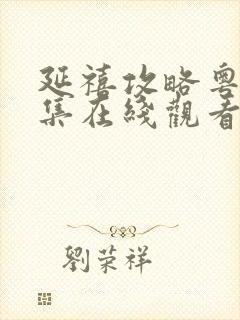 延禧攻略粤
集在綫觀看
劉荣祥